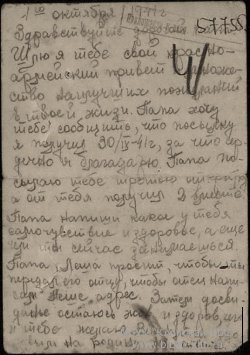 1го октября 1941г
Здравствуйте дорогой
Шлю я тебе свой красно-
армейский привет и множе-
ство наилучших пожеланий
в твоей жизни. Папа хочу
тебе сообщить, что посылку
я получил 30/IX-41г, за что сер-
дечно я благодарю. Папа по-
сылаю тебе третью
а от тебя получил 2
Папа напиши какое у тебя
самочувствие и здоровье, а еще
чем ты сейчас занимаешься.
Папа, Леша просит, чтобы ты
передал его отцу, чтобы отец напи-
сал Леше адрес. Затем досви-
данье остаюсь жив и здоров,
и тебе желаю